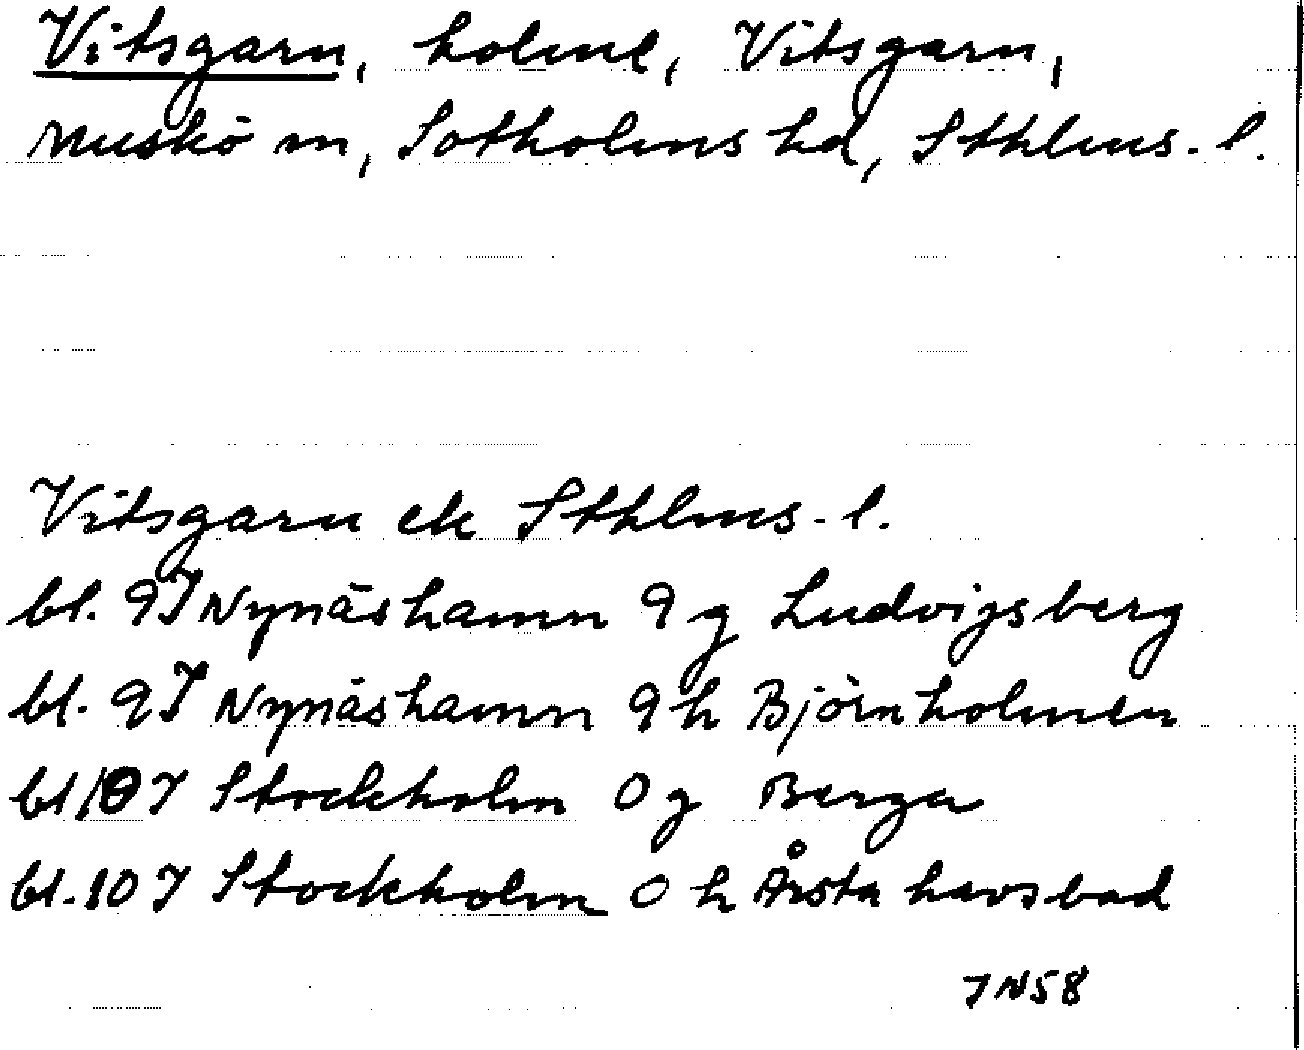 Vitsgarn, holme, Vitsgarn,
Muskö sn, Sotholms hd, Sthlms. l.
Vitsgarn ek Sthlms. l.
bl. 9I Nynäshamn 9 g Ludvigsberg
bl. 9I Nynäshamn 9 h Björnholmen
bl 10 I Stockholm 0 g Berga
bl. 10 I Stockholm 0 h Årsta havsbad
IN58